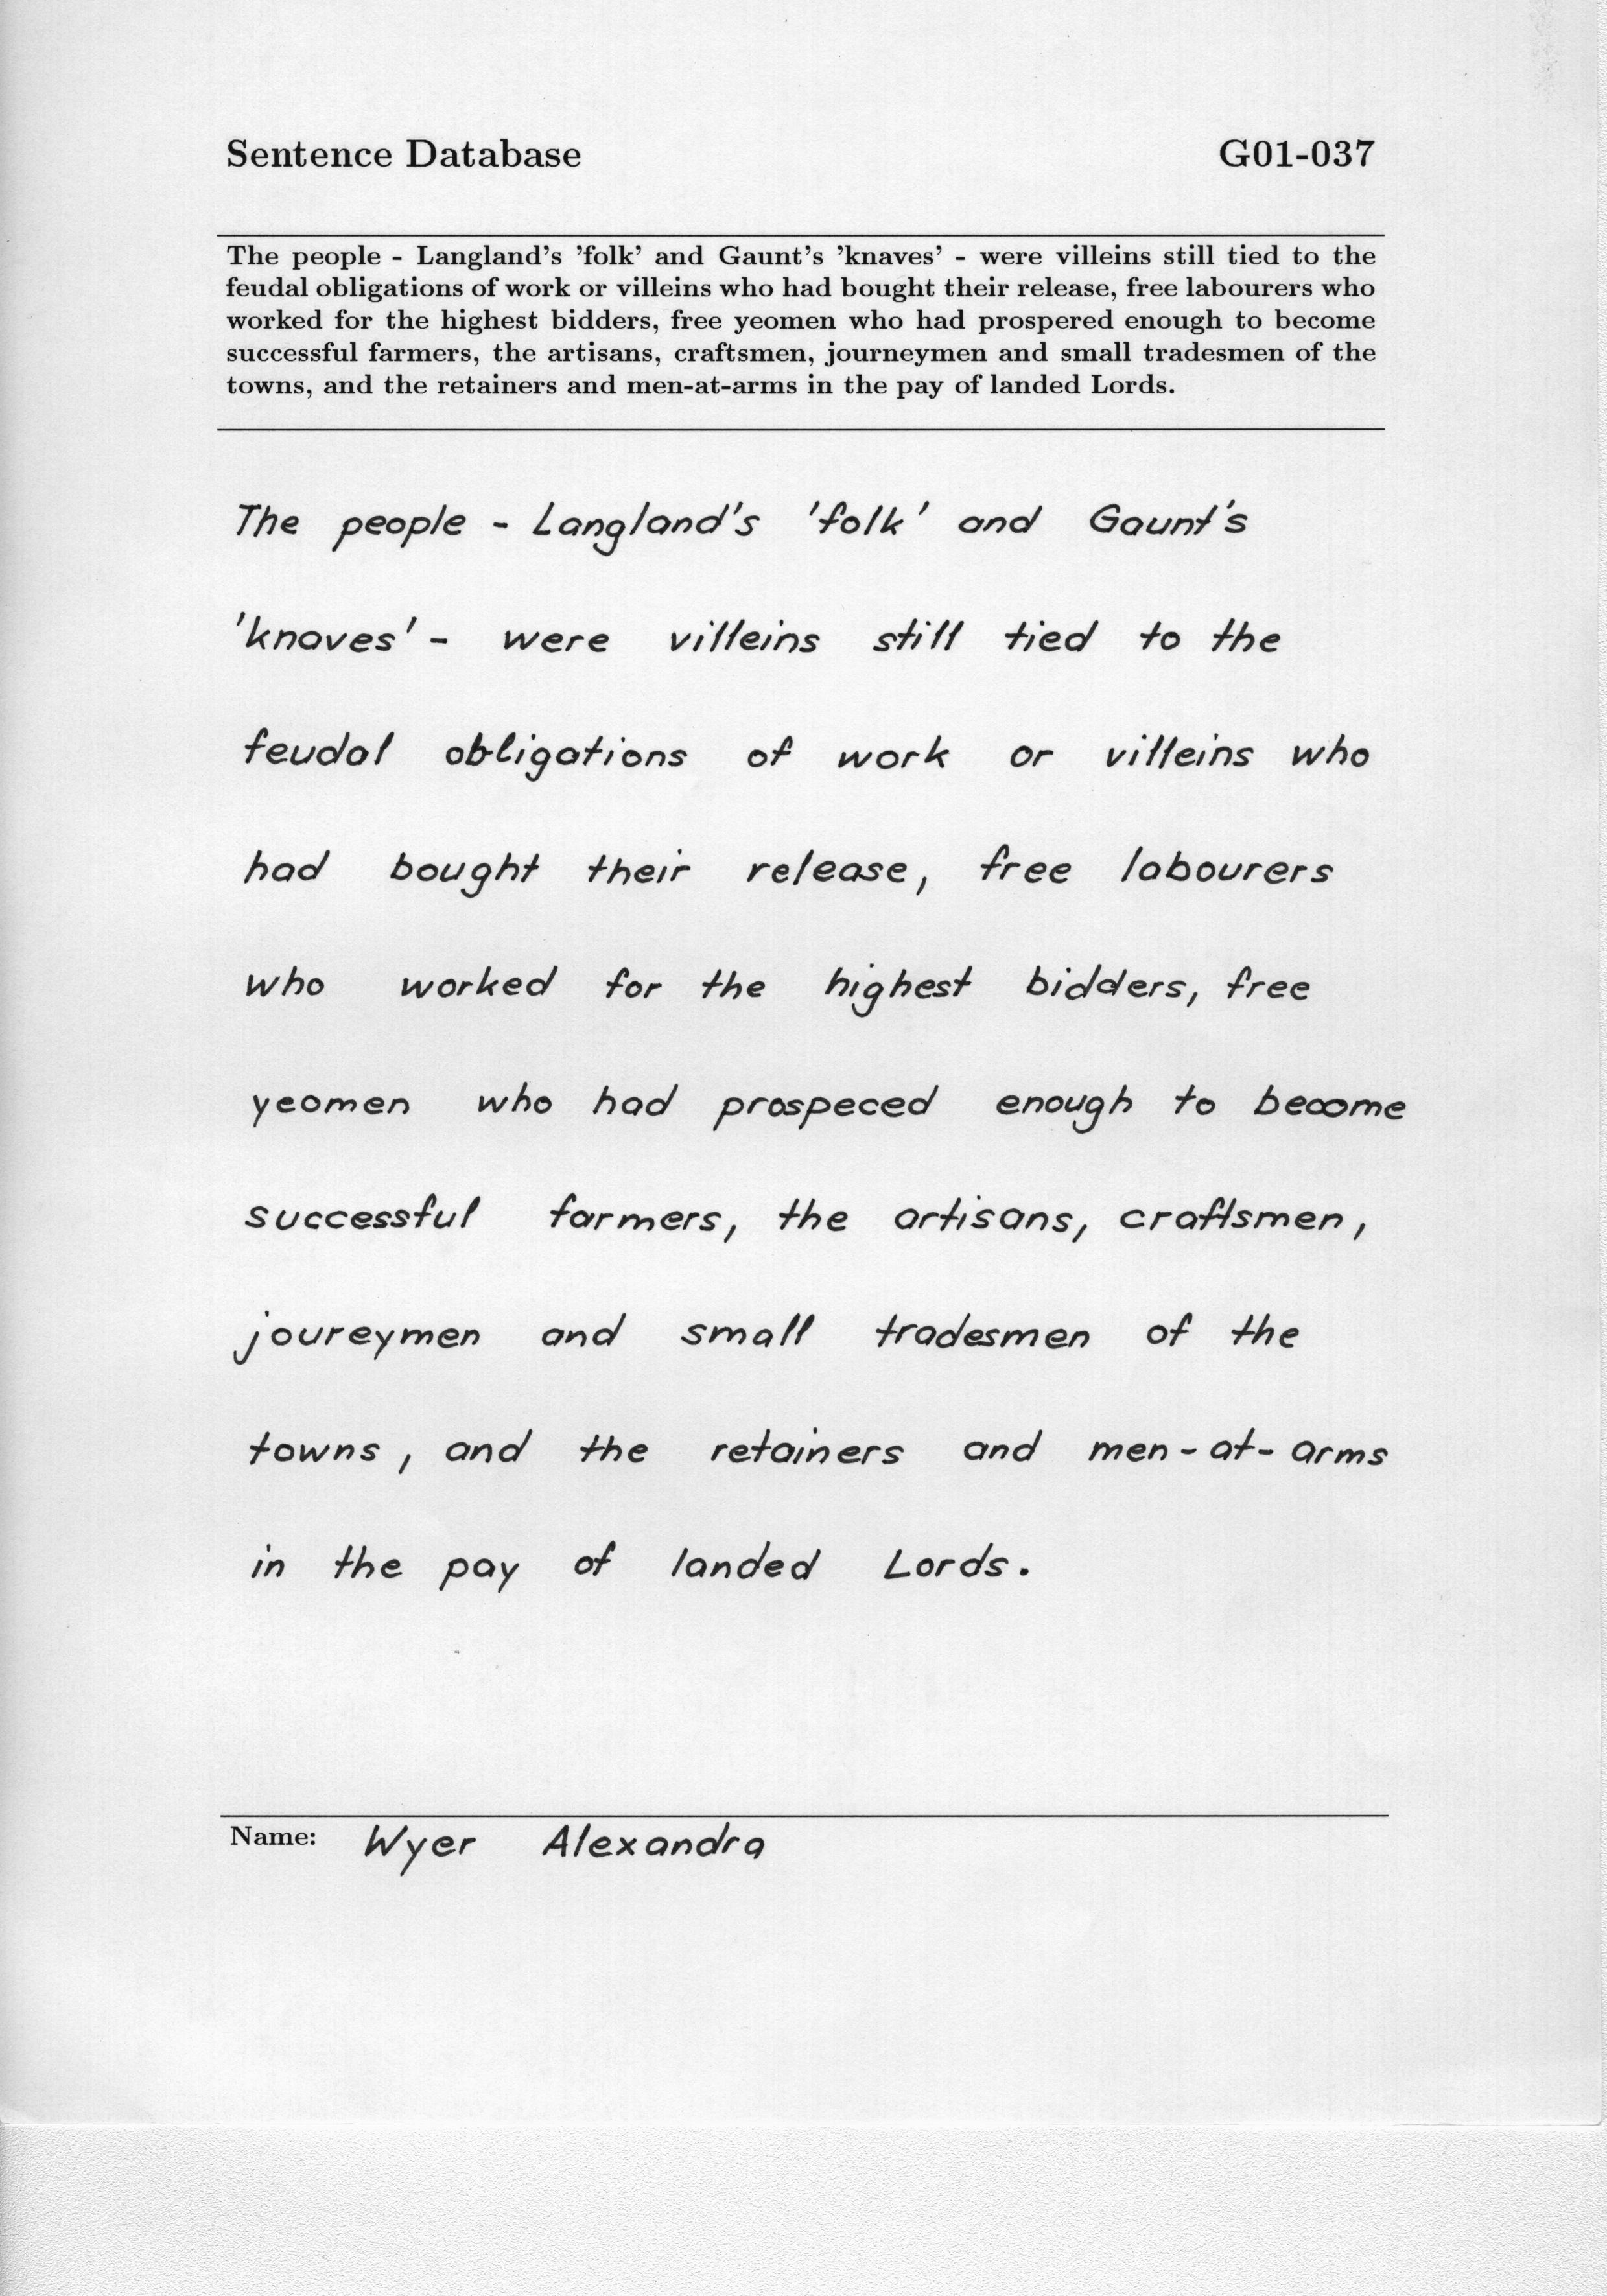 Sentence Database G01-037
The people - Langland's 'folk' and Gaunt's 'knaves' - were villeins still tied to the
feudal obligations of work or villeins who had bought their release, free labourers who
worked for the highest bidders, free yeomen who had prospered enough to become
successful farmers, the artisans, craftsmen, journeymen and small tradesmen of the
towns, and the retainers and men-at-arms in the pay of landed Lords.
The people - Langland's 'folk' and Gaunt's
'knaves' - were villeins still tied to the
feudal obligations of work or villeins who
had bought their release, free labourers
who worked for the highest bidders, free
yeomen who had prospeced enough to become
successful farmers, the artisans, craftsmen,
joureymen and small tradesmen of the
towns, and the retainers and men-at-arms
in the pay of landed Lords.
Name: Wyer Alexandra